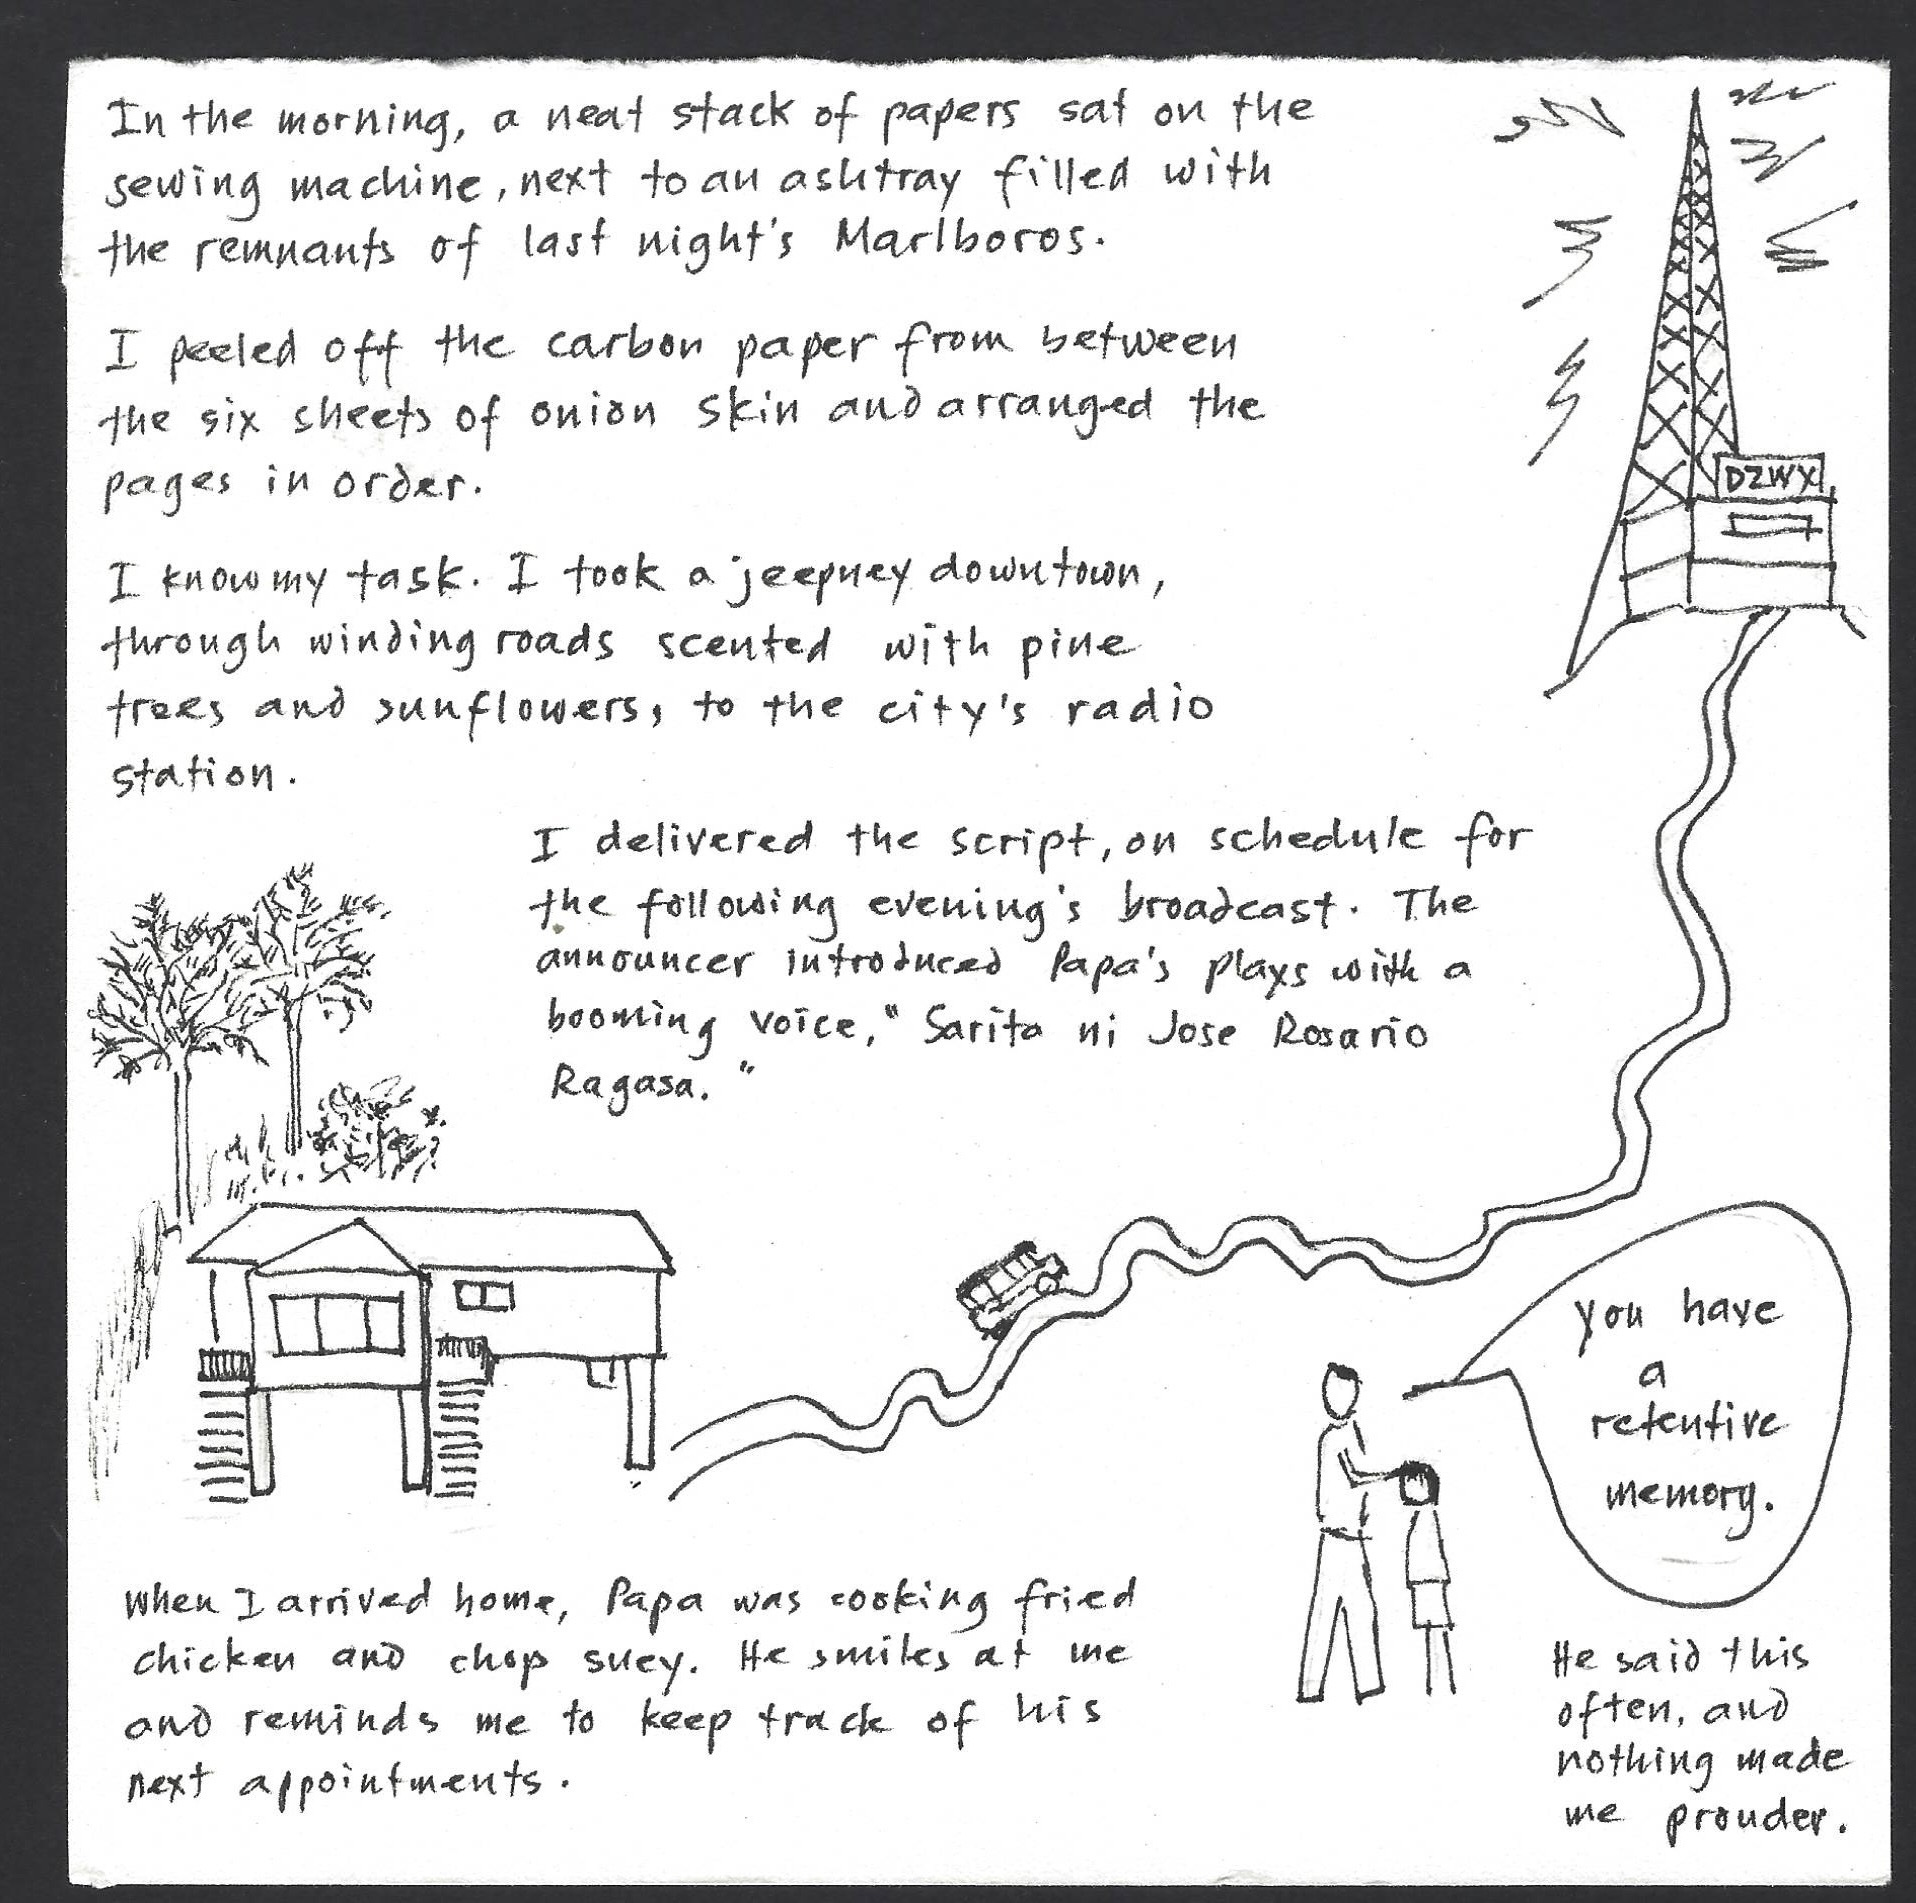 In the morning, a neat stack of papers sat on the
sewing machine, next to an ashtray filled with
the remnants of last night's Marlboros.
I peeled off the carbon paper from between
the six sheets of onion skin and arranged the
pages in order.
I know my task. I took a jeepney downtown,
through winding roads scented with pine
trees and sunflowers, to the city's radio
station.
DZWX
I delivered the script, on schedule for
the following evening's broadcast. The
announcer introduced Papa's plays with a
booming voice, "Sarita ni Jose Rosario
Ragasa."
you have
a
retentive
memory.
When I arrived home, Papa was cooking fried
chicken and chop suey. He smiles at me
and reminds me to keep track of his
next appointments.
He said this
often, and
nothing made
me prouder.